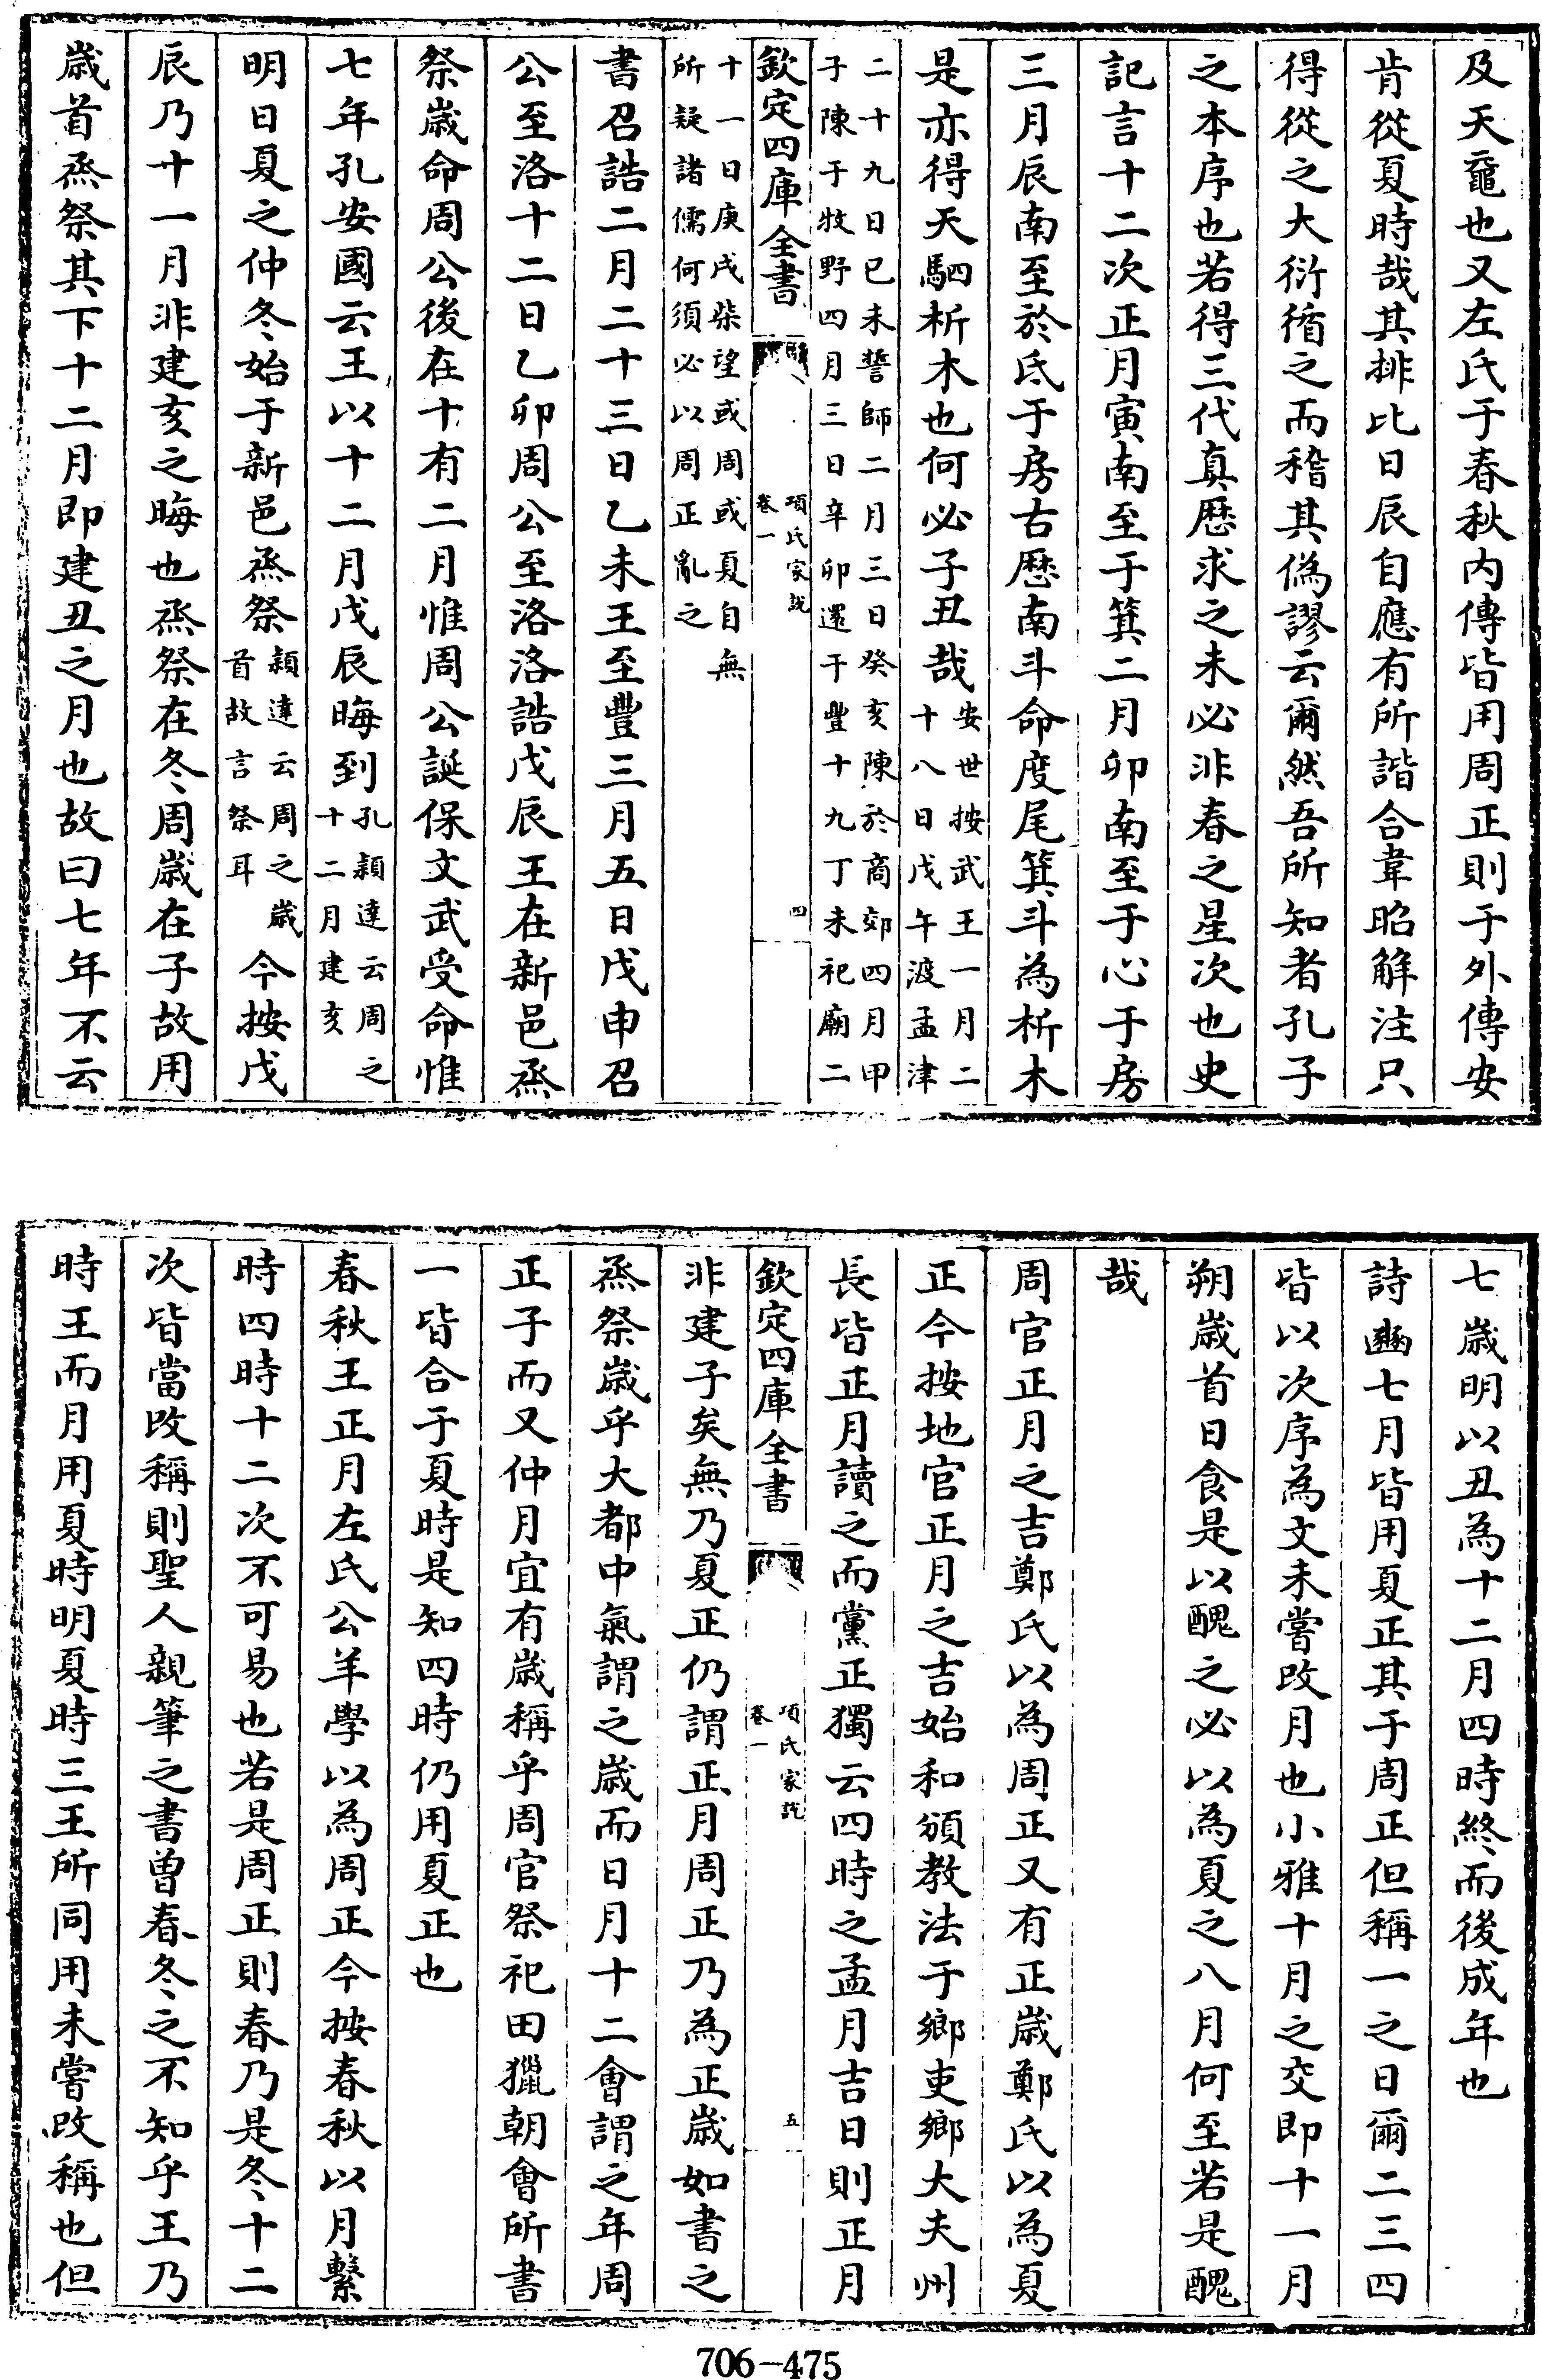 及天黿也又左氏于春秋内傳皆用周正則于外傳安
肯從夏時哉其排比日辰自應有所諧合韋昭解注只
得從之大衍循之而稽其偽謬云爾然吾所知者孔子
之本序也若得三代真厯求之未必非春之星次也史
記言十二次正月寅南至于箕二月卯南至于心于房
三月辰南至於氐于房古厯南斗命度尾箕斗為析木
是亦得天駟析木也何必子丑哉安世按武王一月二
十八日戊午渡孟津
二十九日已未誓師二月三日癸亥陳於商郊四月甲
子陳于牧野四月三日辛卯還于豐十九丁未祀廟二
欽定四庫全書
項氏家說
卷一
四
十一日庚戌柴望或周或夏自無
所疑諸儒何須必以周正亂之
書召誥二月二十三日乙未王至豐三月五日戊申召
公至洛十二日乙卯周公至洛洛誥戊辰王在新邑烝
祭歲命周公後在十有二月惟周公誕保文武受命惟
七年孔安國云王以十二月戊辰晦到孔穎達云周之
十二月建亥
明日夏之仲冬始于新邑烝祭穎達云周之歲
首故言祭耳今按戊
辰乃十一月非建亥之晦也烝祭在冬周歲在子故用
歲首烝祭其下十二月即建丑之月也故曰七年不云
七歲明以丑為十二月四時終而後成年也
詩豳七月皆用夏正其于周正但稱一之日爾二三四
皆以次序為文未嘗改月也小雅十月之交即十一月
朔歲首日食是以醜之必以為夏之八月何至若是醜
哉
周官正月之吉鄭氏以為周正又有正歲鄭氏以為夏
正今按地官正月之吉始和頒教法于鄉吏鄉大夫州
長皆正月讀之而黨正獨云四時之孟月吉日則正月
欽定四庫全書
項氏家說
卷一
五
非建子矣無乃夏正仍謂正月周正乃為正歲如書之
烝祭歲乎大都中氣謂之歲而日月十二會謂之年周
正子而又仲月宜有歲稱乎周官祭祀田獵朝會所書
一皆合于夏時是知四時仍用夏正也
春秋王正月左氏公羊學以為周正今按春秋以月繫
時四時十二次不可易也若是周正則春乃是冬十二
次皆當改稱則聖人親筆之書曾春冬之不知乎王乃
時王而月用夏時明夏時三王所同用未嘗改稱也但
706-475